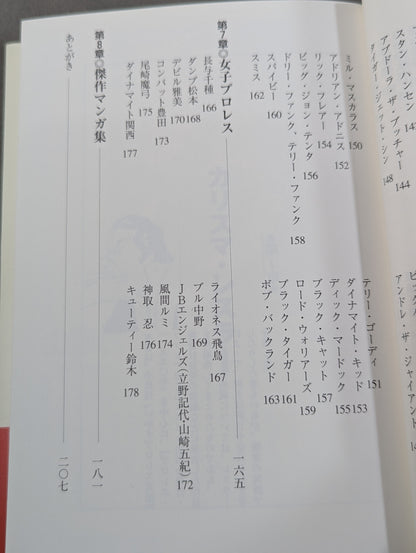 スタン・ハンセ
アブドーラ・ザ・ブッチャー
アンドレ・ザ・ジャイアン
タイガー・ジェット・シン 148
ミル・マスカラス 150
テリー・ゴーディ 151
アドリアン・アドニス 152
ダイナマイト・キッド 153
リック・フレアー 154
ディック・マードック 155
ビッグ・ジョン・テンタ 156
ブラック・キャット 157
ドリー・ファンク、テリー・ファンク 158
ロード・ウォリアーズ 159
スパイビー 160
ブラック・タイガー 161
スミス 162
ボブ・バックランド 163
第7章◎女子プロレス 一六五
長与千種 166
ライオネス飛鳥 167
ダンプ松本 168
ブル中野 169
デビル雅美 170
JBエンジェルズ(立野記代・山崎五紀) 172
コンバット豊田 173
風間ルミ 174
尾崎魔弓 175
神取 忍 176
ダイナマイト関西 177
キューティー鈴木 178
第8章◎傑作マンガ集 一八一
あとがき 二〇七